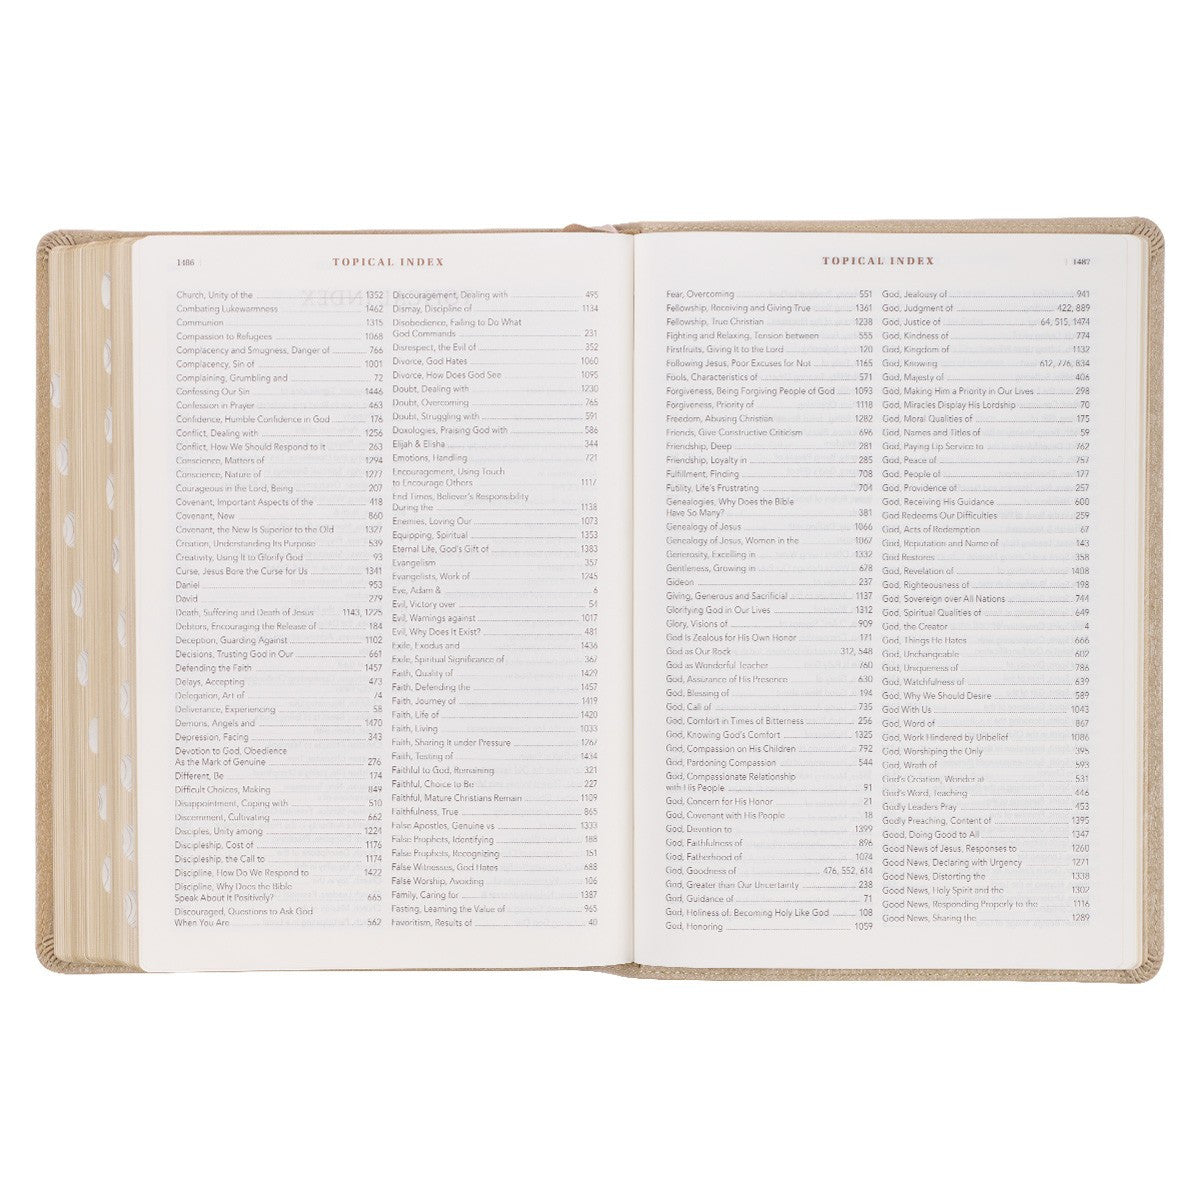 1486
TOPICAL INDEX
Church, Unity of the 1352
Combating Lukewarmness 1462
Communion 1315
Compassion to Refugees 1068
Complacency and Smugness, Danger of 766
Complacency, Sin of 1001
Complaining, Grumbling and 72
Confessing Our Sin 1446
Confession in Prayer 463
Confidence, Humble Confidence in God 176
Conflict, Dealing with 1256
Conflict, How We Should Respond to It 263
Conscience, Matters of 1294
Conscience, Nature of 1277
Courageous in the Lord, Being 207
Covenant, Important Aspects of the 418
Covenant, New 860
Covenant, the New Is Superior to the Old 1327
Creation, Understanding Its Purpose 539
Creativity, Using It to Glorify God 93
Curse, Jesus Bore the Curse for Us 1341
Daniel 953
David 279
Death, Suffering and Death of Jesus 1143, 1225
Debtors, Encouraging the Release of 184
Deception, Guarding Against 1102
Decisions, Trusting God in Our 661
Defending the Faith 1457
Delays, Accepting 473
Delegation, Art of 74
Deliverance, Experiencing 58
Demons, Angels and 1470
Depression, Facing 343
Devotion to God, Obedience
As the Mark of Genuine 276
Different, Be 174
Difficult Choices, Making 849
Disappointment, Coping with 510
Discernment, Cultivating 662
Disciples, Unity among 1224
Discipleship, Cost of 1176
Discipleship, the Call to 1174
Discipline, How Do We Respond to 1422
Discipline, Why Does the Bible
Speak About It Positively? 665
Discouraged, Questions to Ask God
When You Are 562
Discouragement, Dealing with 495
Dismay, Discipline of 1134
Disobedience, Failing to Do What
God Commands 231
Disrespect, the Evil of 352
Divorce, God Hates 1060
Divorce, How Does God See 1095
Doubt, Dealing with 1230
Doubt, Overcoming 765
Doubt, Struggling with 591
Doxologies, Praising God with 586
Elijah & Elisha 344
Emotions, Handling 721
Encouragement, Using Touch
to Encourage Others 1117
End Times, Believer's Responsibility
During the 1138
Enemies, Loving Our 1073
Equipping, Spiritual 1353
Eternal Life, God's Gift of 1383
Evangelism 357
Evangelists, Work of 1245
Eve, Adam & 6
Evil, Victory over 54
Evil, Warnings against 1017
Evil, Why Does It Exist? 481
Exile, Exodus and 1436
Exile, Spiritual Significance of 367
Faith, Quality of 1429
Faith, Defending the 1457
Faith, Journey of 1419
Faith, Life of 1420
Faith, Living 1033
Faith, Sharing It under Pressure 1267
Faith, Testing of 1434
Faithful to God, Remaining 321
Faithful, Choice to Be 227
Faithful, Mature Christians Remain 1109
Faithfulness, True 865
False Apostles, Genuine vs 1333
False Prophets, Identifying 188
False Prophets, Recognizing 151
False Witnesses, God Hates 688
False Worship, Avoiding 106
Family, Caring for 1387
Fasting, Learning the Value of 965
Favoritism, Results of 40
TOPICAL INDEX
1487
Fear, Overcoming 551
Fellowship, Receiving and Giving True 1361
Fellowship, True Christian 1238
Fighting and Relaxing, Tension between 555
Firstfruits, Giving It to the Lord 120
Following Jesus, Poor Excuses for Not 1165
Fools, Characteristics of 571
Forgiveness, Being Forgiving People of God 1093
Forgiveness, Priority of 1118
Freedom, Abusing Christian 1282
Friends, Give Constructive Criticism 696
Friendship, Deep 281
Friendship, Loyalty in 285
Fulfillment, Finding 708
Futility, Life's Frustrating 704
Genealogies, Why Does the Bible
Have So Many? 381
Genealogy of Jesus 1066
Genealogy of Jesus, Women in the 1067
Generosity, Excelling in 1332
Gentleness, Growing in 678
Gideon 237
Giving, Generous and Sacrificial 1137
Glorifying God in Our Lives 1312
Glory, Visions of 909
God Is Zealous for His Own Honor 171
God as Our Rock 312, 548
God as Wonderful Teacher 760
God, Assurance of His Presence 630
God, Blessing of 194
God, Call of 735
God, Comfort in Times of Bitterness 256
God, Knowing God's Comfort 1325
God, Compassion on His Children 792
God, Pardoning Compassion 544
God, Compassionate Relationship
with His People 91
God, Concern for His Honor 21
God, Covenant with His People 18
God, Devotion to 1399
God, Faithfulness of 896
God, Fatherhood of 1074
God, Goodness of 476, 552, 614
God, Greater than Our Uncertainty 238
God, Guidance of 71
God, Holiness of, Becoming Holy Like God 108
God, Honoring 1059
God, Jealousy of 941
God, Judgment of 422, 889
God, Justice of 64, 515, 1474
God, Kindness of 774
God, Kingdom of 1132
God, Knowing 612, 776, 834
God, Majesty of 406
God, Making Him a Priority in Our Lives 298
God, Miracles Display His Lordship 70
God, Moral Qualities of 175
God, Names and Titles of 59
God, Paying Lip Service to 762
God, Peace of 757
God, People of 127
God, Providence of 257
God, Receiving His Guidance 600
God Redeems Our Difficulties 259
God, Acts of Redemption 67
God, Reputation and Name of 143
God Restores 358
God, Revelation of 1408
God, Righteousness of 198
God, Sovereign over All Nations 744
God, Spiritual Qualities of 649
God, the Creator 4
God, Things He Hates 666
God, Unchangeable 602
God, Uniqueness of 786
God, Watchfulness of 639
God, Why We Should Desire 589
God With Us 1043
God, Word of 867
God, Work Hindered by Unbelief 1086
God, Worshiping the Only 395
God, Wrath of 593
God's Creation, Wonder at 531
God's Word, Teaching 446
Godly Leaders Pray 453
Godly Preaching, Content of 1395
Good, Doing Good to All 1347
Good News of Jesus, Responses to 1260
Good News, Declaring with Urgency 1271
Good News, Distorting the 1338
Good News, Holy Spirit and the 1302
Good News, Responding Properly to the 1116
Good News, Sharing the 1289